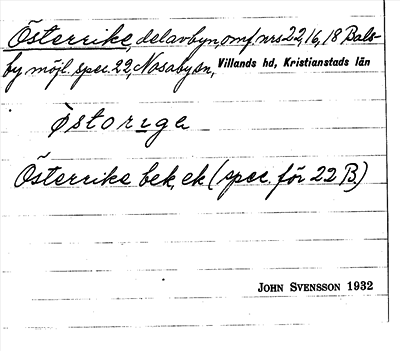 Österrike, del av byn, omf. nrs 22, 16, 18 Bals-
by möjl. spec. 22, Nosaby sn, Villands hd, Kristianstads län
östoriga
Österrike bek, ek (spec. för 22 B.)
JOHN SVENSSON 1932